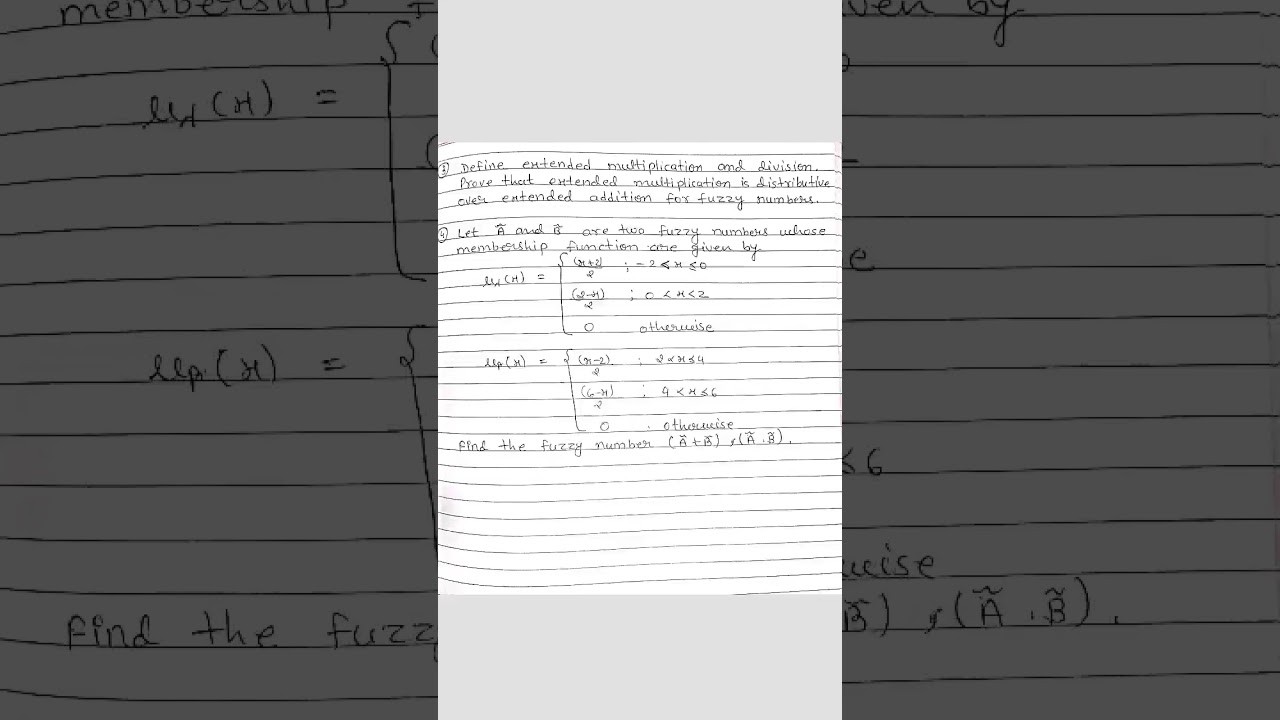 ③ Define extended multiplication and division.
Prove that extended multiplication is distributive
over extended addition for fuzzy numbers.
④ Let Ã and B̃ are two fuzzy numbers whose
membership function are given by
(x+2)/2 ; -2 < x ≤ 0
μA(x) =
(2-x)/2 ; 0 < x < 2
0 otherwise
μB(x) = (x-2)/2 ; 2 < x ≤ 4
(6-x)/2 ; 4 < x ≤ 6
0 . otherwise
find the fuzzy number (Ã + B̃) , (Ã . B̃) .